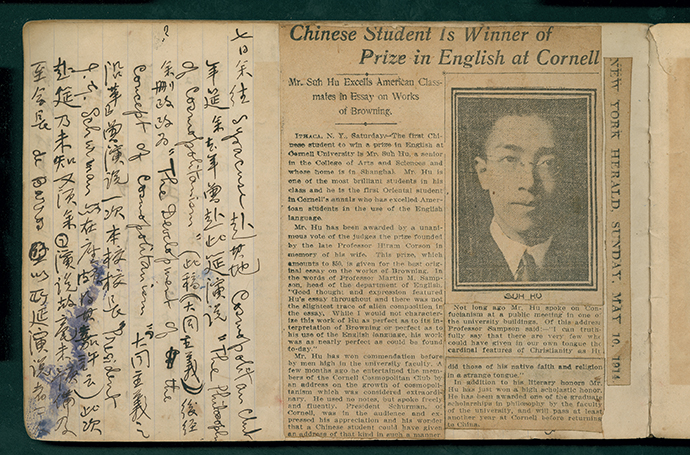 七日余往 Syracuse 赴其地 Cosmopolitan Club
年筵余去年曾赴此筵演說 "The Philosophy
of Cosmopolitanism" 此稿(大同主義)後經
? 余刪改為 "The Development of the
Concept of Cosmopolitanism" "大同主義
沿革"曾演說一次本校校長 President
Schurman 在座
赴筵乃未知又須余演說故

Chinese Student Is Winner of
Prize in English at Cornell
Mr. Suh Hu Excells American Class-
mates in Essay on Works
of Browning.
ITHACA, N. Y., Saturday.—The first Chi-
nese student to win a prize in English at
Cornell University is Mr. Suh Hu, a senior
in the College of Arts and Sciences and
whose home is in Shanghai. Mr. Hu is
one of the most brilliant students in his
class and he is the first Oriental student
in Cornell's annals who has excelled Amer-
ican students in the use of the English
language.
Mr. Hu has been awarded by a unani-
mous vote of the judges the prize founded
by the late Professor Hiram Corson in
memory of his wife. This prize, which
amounts to $50, is given for the best orig-
inal essay on the works of Browning. In
the words of Professor Martin M. Samp-
son, head of the department of English,
"Good thought and expression featured
Hu's essay throughout and there was not
the slightest trace of alien composition in
the essay. While I would not character-
ize this work of Hu as perfect as to its in-
terpretation of Browning or perfect as to
his use of the English language, his work
was as nearly perfect as could be found
to-day."
Mr. Hu has won commendation before
by men high in the university faculty. A
few months ago he entertained the mem-
bers of the Cornell Cosmopolitan Club by
an address on the growth of cosmopoli-
tanism which was considered extraordi-
nary. He used no notes, but spoke freely
and fluently. President Schurman, of
Cornell, was in the audience and ex-
pressed his appreciation and his wonder
that a Chinese student could have given
an address of that kind in such a manner
SUH HU
Not long ago Mr. Hu spoke on Con-
fucianism at a public meeting in one of
the university buildings. Of this address
Professor Sampson said:—"I can truth-
fully say that there are very few who
could have given in our own tongue the
cardinal features of Christianity as Hu
did those of his native faith and religion
in a strange tongue."
In addition to his literary honors Mr.
Hu has just won a high scholastic honor.
He has been awarded one of the graduate
scholarships in philosophy by the faculty
of the university, and will pass at least
another year at Cornell before returning
to China.
NEW YORK HERALD, SUNDAY, MAY 10, 1914.